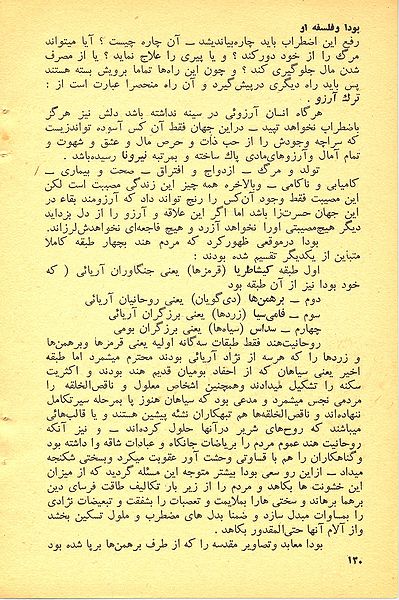 بودا وفلسفه او
رفع این اضطراب باید چاره‌بیاندیشد ــ آن چاره چیست ؟ آیا میتواند
مرگ را از خود دورکند ؟ و یا پیری را علاج نماید ؟ یا از مصرف
شدن مال جلوگیری کند ؟ و چون این راه‌ها تماما برویش بسته هستند
پس باید راه دیگری درپیش‌گیرد و آن راه منحصرا عبارت است از :
ترك آرزو .
هرگاه انسان آرزوئی در سینه نداشته باشد دلش نیز هرگز
باضطراب نخواهد تپید ــ دراین جهان فقط آن کس آسوده تواندزیست
که سراچه وجودش را از حب ذات و حرص مال و عشق و شهوت و
تمام آمال وآرزوهای‌مادی پاك ساخته و بمرتبه نیرونا رسیده‌باشد .
تولد و مرگ ــ ازدواج و افتراق ــ صحت و بیماری ــ
کامیابی و ناکامی ــ وبالاخره همه چیز این زندگی مصیبت است لکن
این مصیبت فقط وجود آن‌کس را رنج تواند داد که آرزومند بقاء در
این جهان حسرت‌زا باشد اما اگر این علاقه و آرزو را از دل بزداید
دیگر هیچ‌مصیبتی اورا نخواهد آزرد و هیچ فاجعه‌ای نخواهدش‌لرزاند.
بودا درموقعی ظهورکرد که مردم هند بچهار طبقه کاملا
متباین از یکدیگر تقسیم شده بودند :
اول طبقه کیشاطریا (قرمزها) یعنی جنگاوران آریائی ( که
خود بودا نیز از آن طبقه بود
دوم ــ برهمن‌ها (دی‌گویان) یعنی روحانیان آریائی
سوم ــ فامی‌سیا (زردها) یعنی برزگران آریائی
چهارم ــ سداس (سیاه‌ها) یعنی برزگران بومی
روحانیت‌هند فقط طبقات سه‌گانه اولیه یعنی قرمزها وبرهمن‌ها
و زردها را که هرسه از نژاد آریائی بودند محترم میشمرد اما طبقه
اخیر یعنی سیاهان که از احفاد بومیان قدیم هند بودند و اکثریت
سکنه را تشکیل میدادند وهمچنین اشخاص معلول و ناقص‌الخلقه را
مردمی نجس میشمرد و مدعی بود که سیاهان هنوز پا بمرحله سیرتکامل
ننهاده‌اند و ناقص‌الخلقه‌ها هم تبهکاران نشئه پیشین هستند و یا قالب‌هائی
میباشند که روح‌های شریر درآنها حلول کرده‌اند ــ و نیز آنکه
روحانیت هند عموم مردم را بریاضات جانکاه و عبادات شاقه وا داشته بود
و گناهکاران را هم با قساوتی وحشت آور عقوبت میکرد وبسختی شکنجه
میداد ــ ازاین رو سعی بودا بیشتر متوجه این مسئله گردید که از میزان
این خشونت ها بکاهد و مردم را از زیر بار تکالیف طاقت فرسای دین
برهما برهاند و سختی هارا بملایمت و تعصبات را بشفقت و تبعیضات نژادی
را بمساوات مبدل سازد و ضمنا بدل های مضطرب و ملول تسکین بخشد
واز آلام آنها حتی‌المقدور بکاهد .
بودا معابد وتصاویر مقدسه را که از طرف برهمن‌ها برپا شده بود
۱۳۰